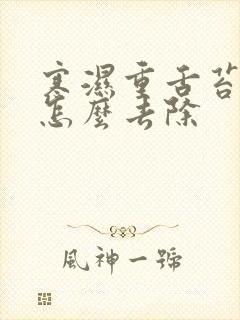 寒濕重舌苔
怎麼去除
風神一號